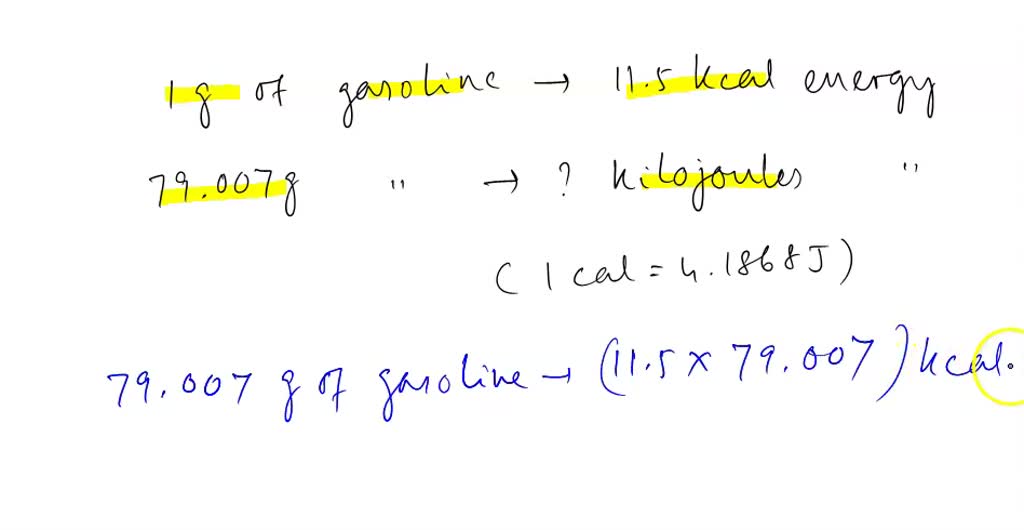 1g of gasoline → 11.5 kcal energy
79.007g " → ? kilojoules "
(1 cal = 4.1868J)
79.007 g of gasoline → (11.5 x 79.007) kcal.